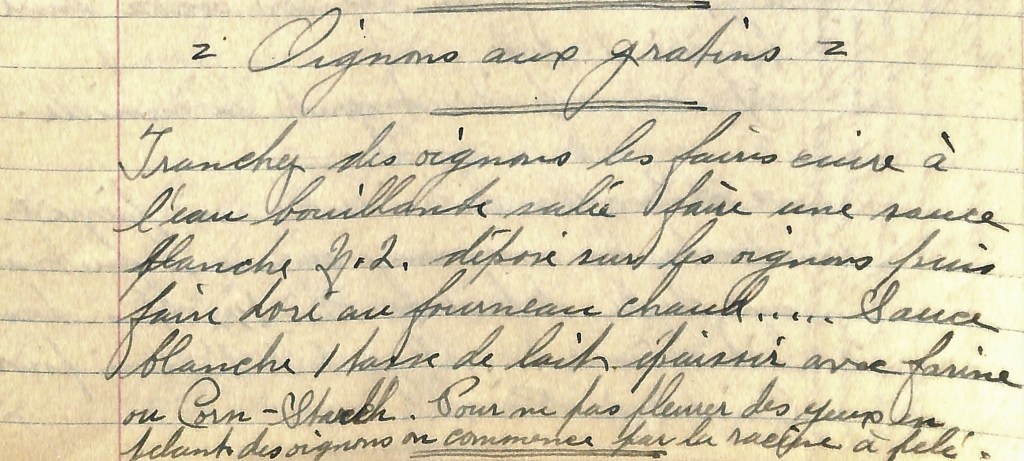 = Oignons aux gratins =
Tranchez des oignons les faires cuire à
l'eau bouillante salée faire une sauce
blanche N.2. déposé sur les oignons puis
faire doré au fourneau chaud..... Sauce
blanche 1 tasse de lait épaissir avec farine
ou Corn-Starch. Pour ne pas pleurer des yeux en
pelant des oignons on commence par la racine à pelé.